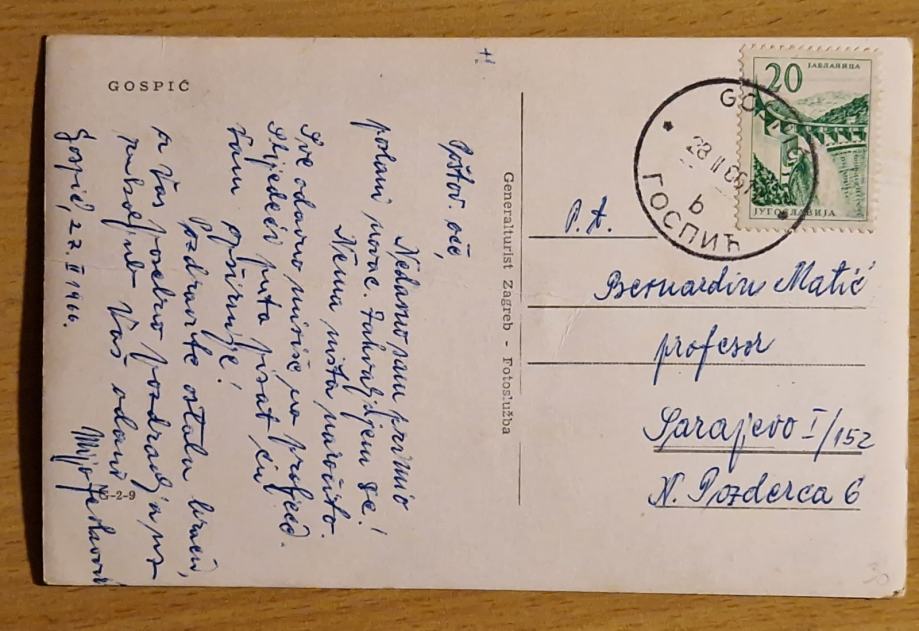 GOSPIĆ
Poštov. oče,
Nedavno sam primio
poslani novac. Zahvaljujem se!
Nema ništa naročito.
Sve odavno miriše na proljeće.
Slijedeći puta pisat ću
Vam opširnije!
Pozdravite ostalu braću,
a Vas posebno pozdravlja uz
Vas odani
Gospić, 27. II 1966.
Mijo
G-2-9
Generalturist Zagreb - Fotoslužba
20
ЈАБЛАНИЦА
ЈУГОСЛАВИЈА
28 II
b
ГОСПИЋ
P. A.
Bernardin Matić
profesor
Sarajevo I/152
N. Pozderca 6
30